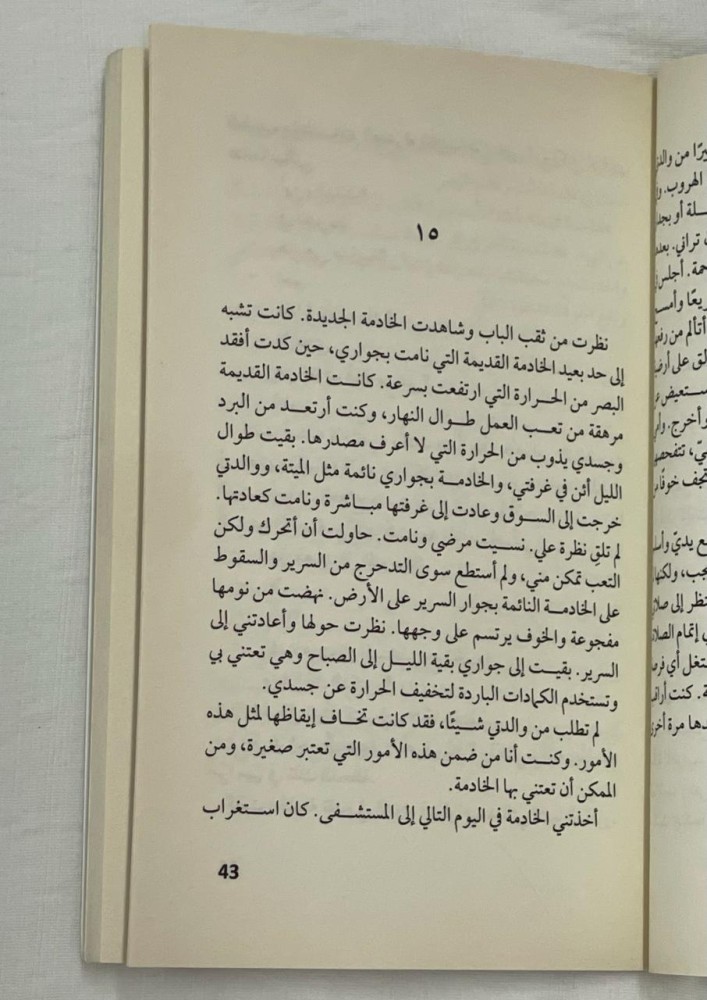 ١٥
نظرت من ثقب الباب وشاهدت الخادمة الجديدة. كانت تشبه
إلى حد بعيد الخادمة القديمة التي نامت بجواري، حين كدت أفقد
البصر من الحرارة التي ارتفعت بسرعة. كانت الخادمة القديمة
مرهقة من تعب العمل طوال النهار، وكنت أرتعد من البرد
وجسدي يذوب من الحرارة التي لا أعرف مصدرها. بقيت طوال
الليل أئن في غرفتي، والخادمة بجواري نائمة مثل الميتة، ووالدتي
خرجت إلى السوق وعادت إلى غرفتها مباشرة ونامت كعادتها.
لم تلقِ نظرة علي. نسيت مرضي ونامت. حاولت أن أتحرك ولكن
التعب تمكن مني، ولم أستطع سوى التدحرج من السرير والسقوط
على الخادمة النائمة بجوار السرير على الأرض. نهضت من نومها
مفجوعة والخوف يرتسم على وجهها. نظرت حولها وأعادتني إلى
السرير. بقيت إلى جواري بقية الليل إلى الصباح وهي تعتني بي
وتستخدم الكمادات الباردة لتخفيف الحرارة عن جسدي.
لم تطلب من والدتي شيئًا، فقد كانت تخاف إيقاظها لمثل هذه
الأمور. وكنت أنا من ضمن هذه الأمور التي تعتبر صغيرة، ومن
الممكن أن تعتني بها الخادمة.
أخذتني الخادمة في اليوم التالي إلى المستشفى. كان استغراب
43
من والدتي
الهروب.
أو بجد
تراني.
أجلس
أتألم من
على
وأخرج.
خوفًا
يديّ
ولكنها
إلى
إتمام
أي
كنت
مرة أخرى